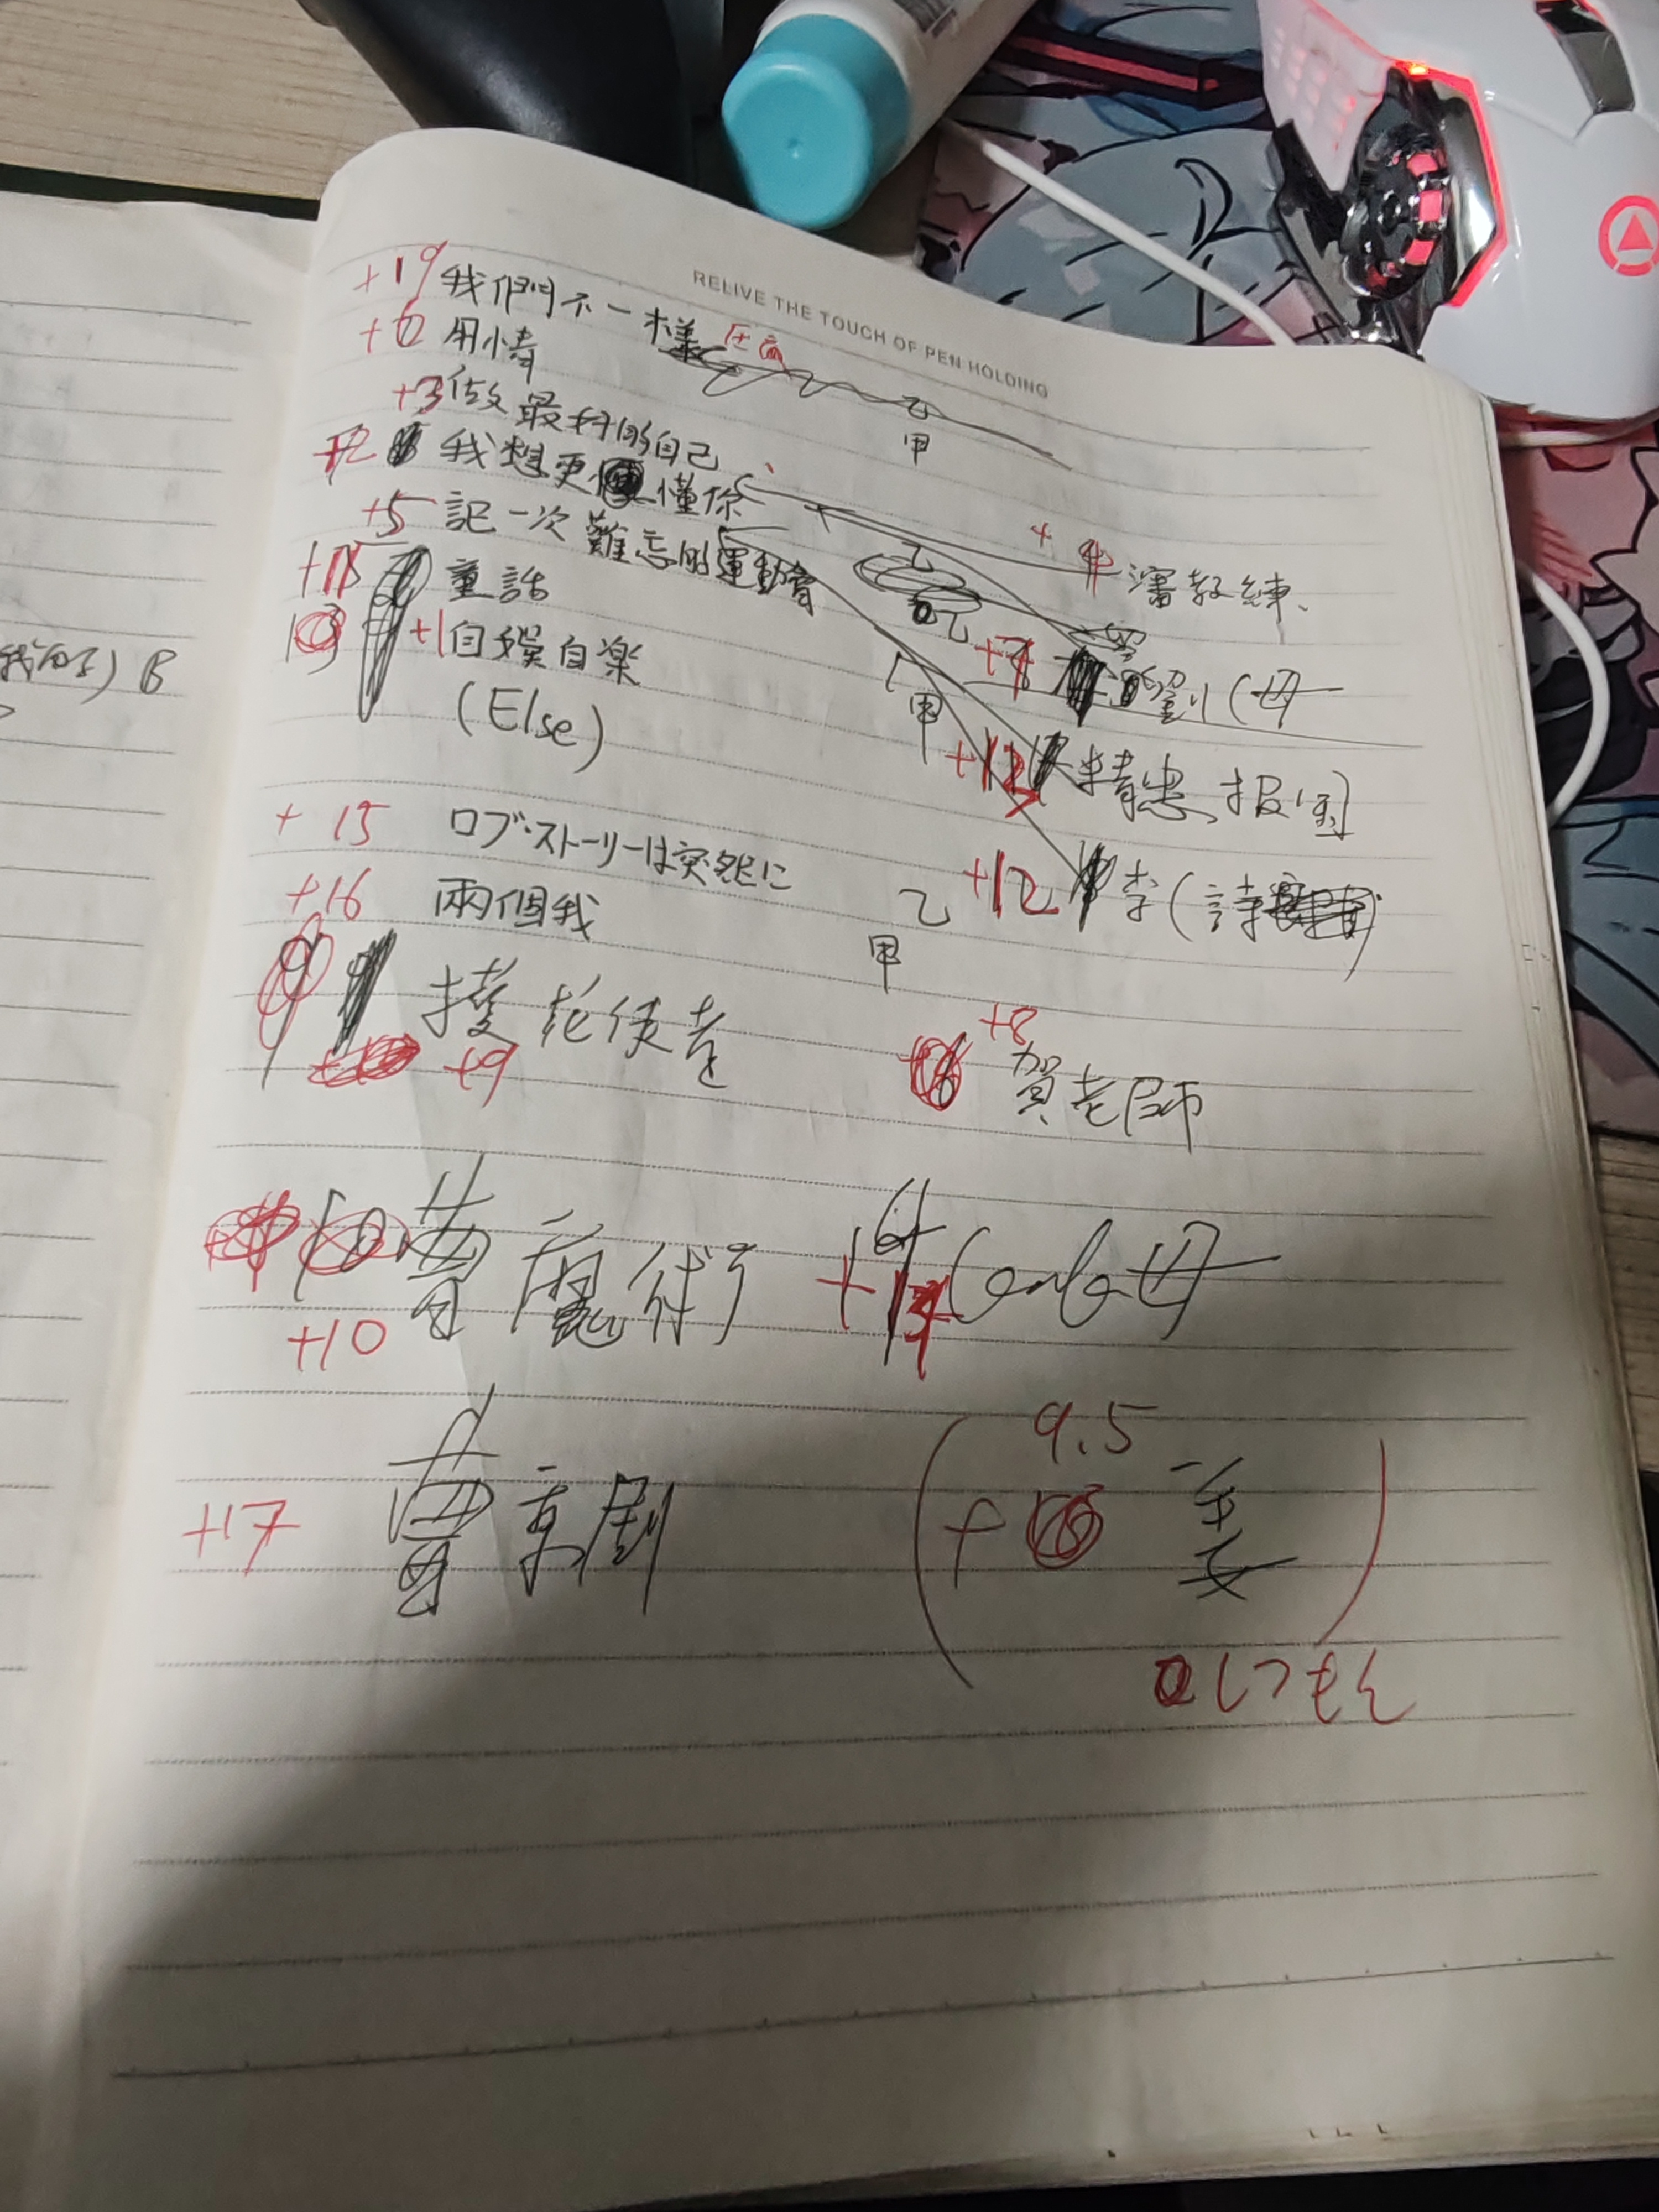 RELIVE THE TOUCH OF PEN HOLDING
+19 我們不一樣 压高
+6 用情
乙
甲
+3 做最好的自己
+2 我想更懂你
+5 記一次難忘的運動會
+4 潘教練、
乙
+18 童話
+1 自娛自楽
(Else)
+7 罗 劉(母
甲
+13 精忠報国
+15 ロブ・ストーリーは突然に
+12 李(詩
乙
甲
+16 兩個我
護花使者
+9
+8
賀老師
+10 曹魔術
+14 (anb母
+17 曹京劇
9.5
+ 姜
しつもん
B